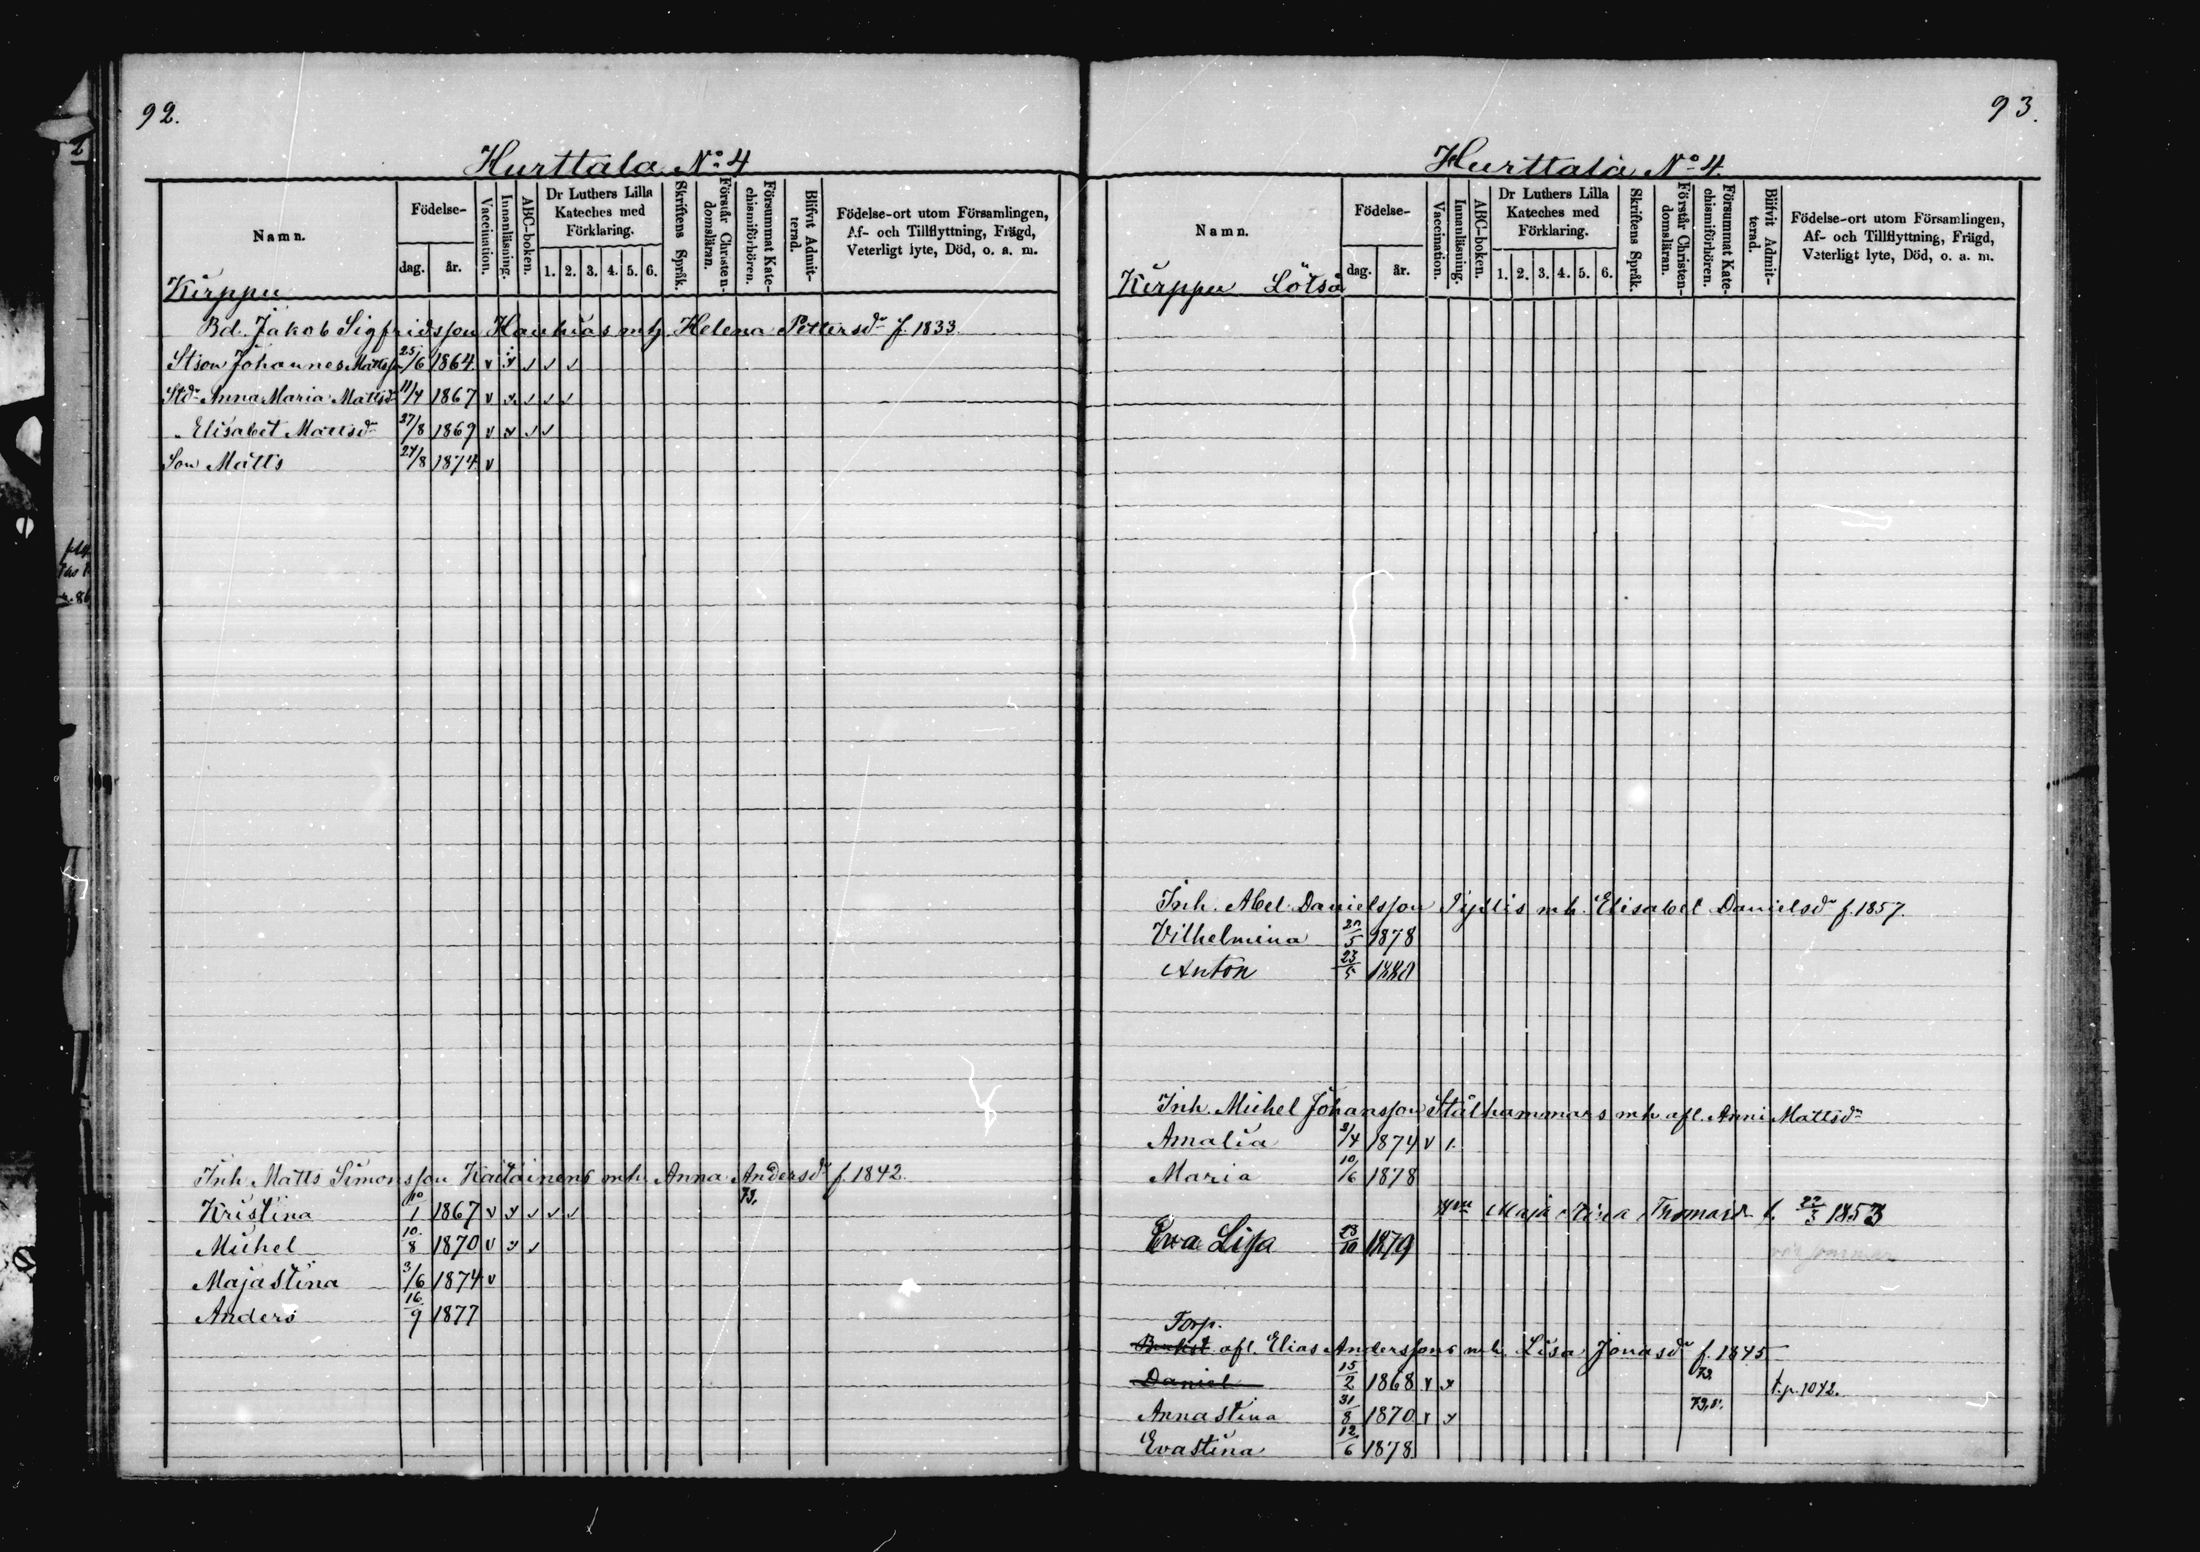 92.
Hurttala No 4
Namn.
Födelse-
dag. år.
Vaccination.
Innanläsning.
ABC-boken.
Dr Luthers Lilla
Kateches med
Förklaring.
1. 2. 3. 4. 5. 6.
Skriftens Språk.
Förstår Christen-
domsläran.
Försummat Kate-
chismiförhören.
Blifvit Admit-
terad.
Födelse-ort utom Församlingen,
Af- och Tillflyttning, Frägd,
Veterligt lyte, Död, o. a. m.
Kirppu
Bd. Jakob Sigfridsson Hauhias mh. Helena Pettersdr f. 1833.
Stson Johannes Mattsson 25/6 1864 v v v v v
Stdr Anna Maria Mattsdr 11/4 1867 v v v v v
" Elisabet Mattsdr 27/8 1869 v v v v
Son Matts 27/8 1874 v
Inh. Matts Simonsson Kaitainens mh. Anna Andersdr f. 1842.
Kristina 10/1 1867 v v v v v 73.
Michel 10/8 1870 v v v
Majastina 3/6 1874 v
Anders 16/9 1877
93.
Hurttala No 4.
Namn.
Födelse-
dag. år.
Vaccination.
Innanläsning.
ABC-boken.
Dr Luthers Lilla
Kateches med
Förklaring.
1. 2. 3. 4. 5. 6.
Skriftens Språk.
Förstår Christen-
domsläran.
Försummat Kate-
chismiförhören.
Blifvit Admit-
terad.
Födelse-ort utom Församlingen,
Af- och Tillflyttning, Frägd,
Veterligt lyte, Död, o. a. m.
Kirppu Lötsä
Inh. Abel Danielsson mh. Elisabet Danielsdr f. 1857.
Vilhelmina 1878
Anton 23/5 1880
Inh. Michel Johansson Stålhammars mh. afl. Anni Mattsdr
Amalia 1874 v
Maria 10/6 1878
Maja Stina Thomasdr f. 22/3 1853
Eva Lisa 23/10 1879
Torp.
afl. Elias Anderssons mh. Lisa Jonasdr f. 1845
Daniel 15/2 1868 v v 73. t. p. 1042.
Annastina 31/8 1870 v v
Evastina 12/6 1878